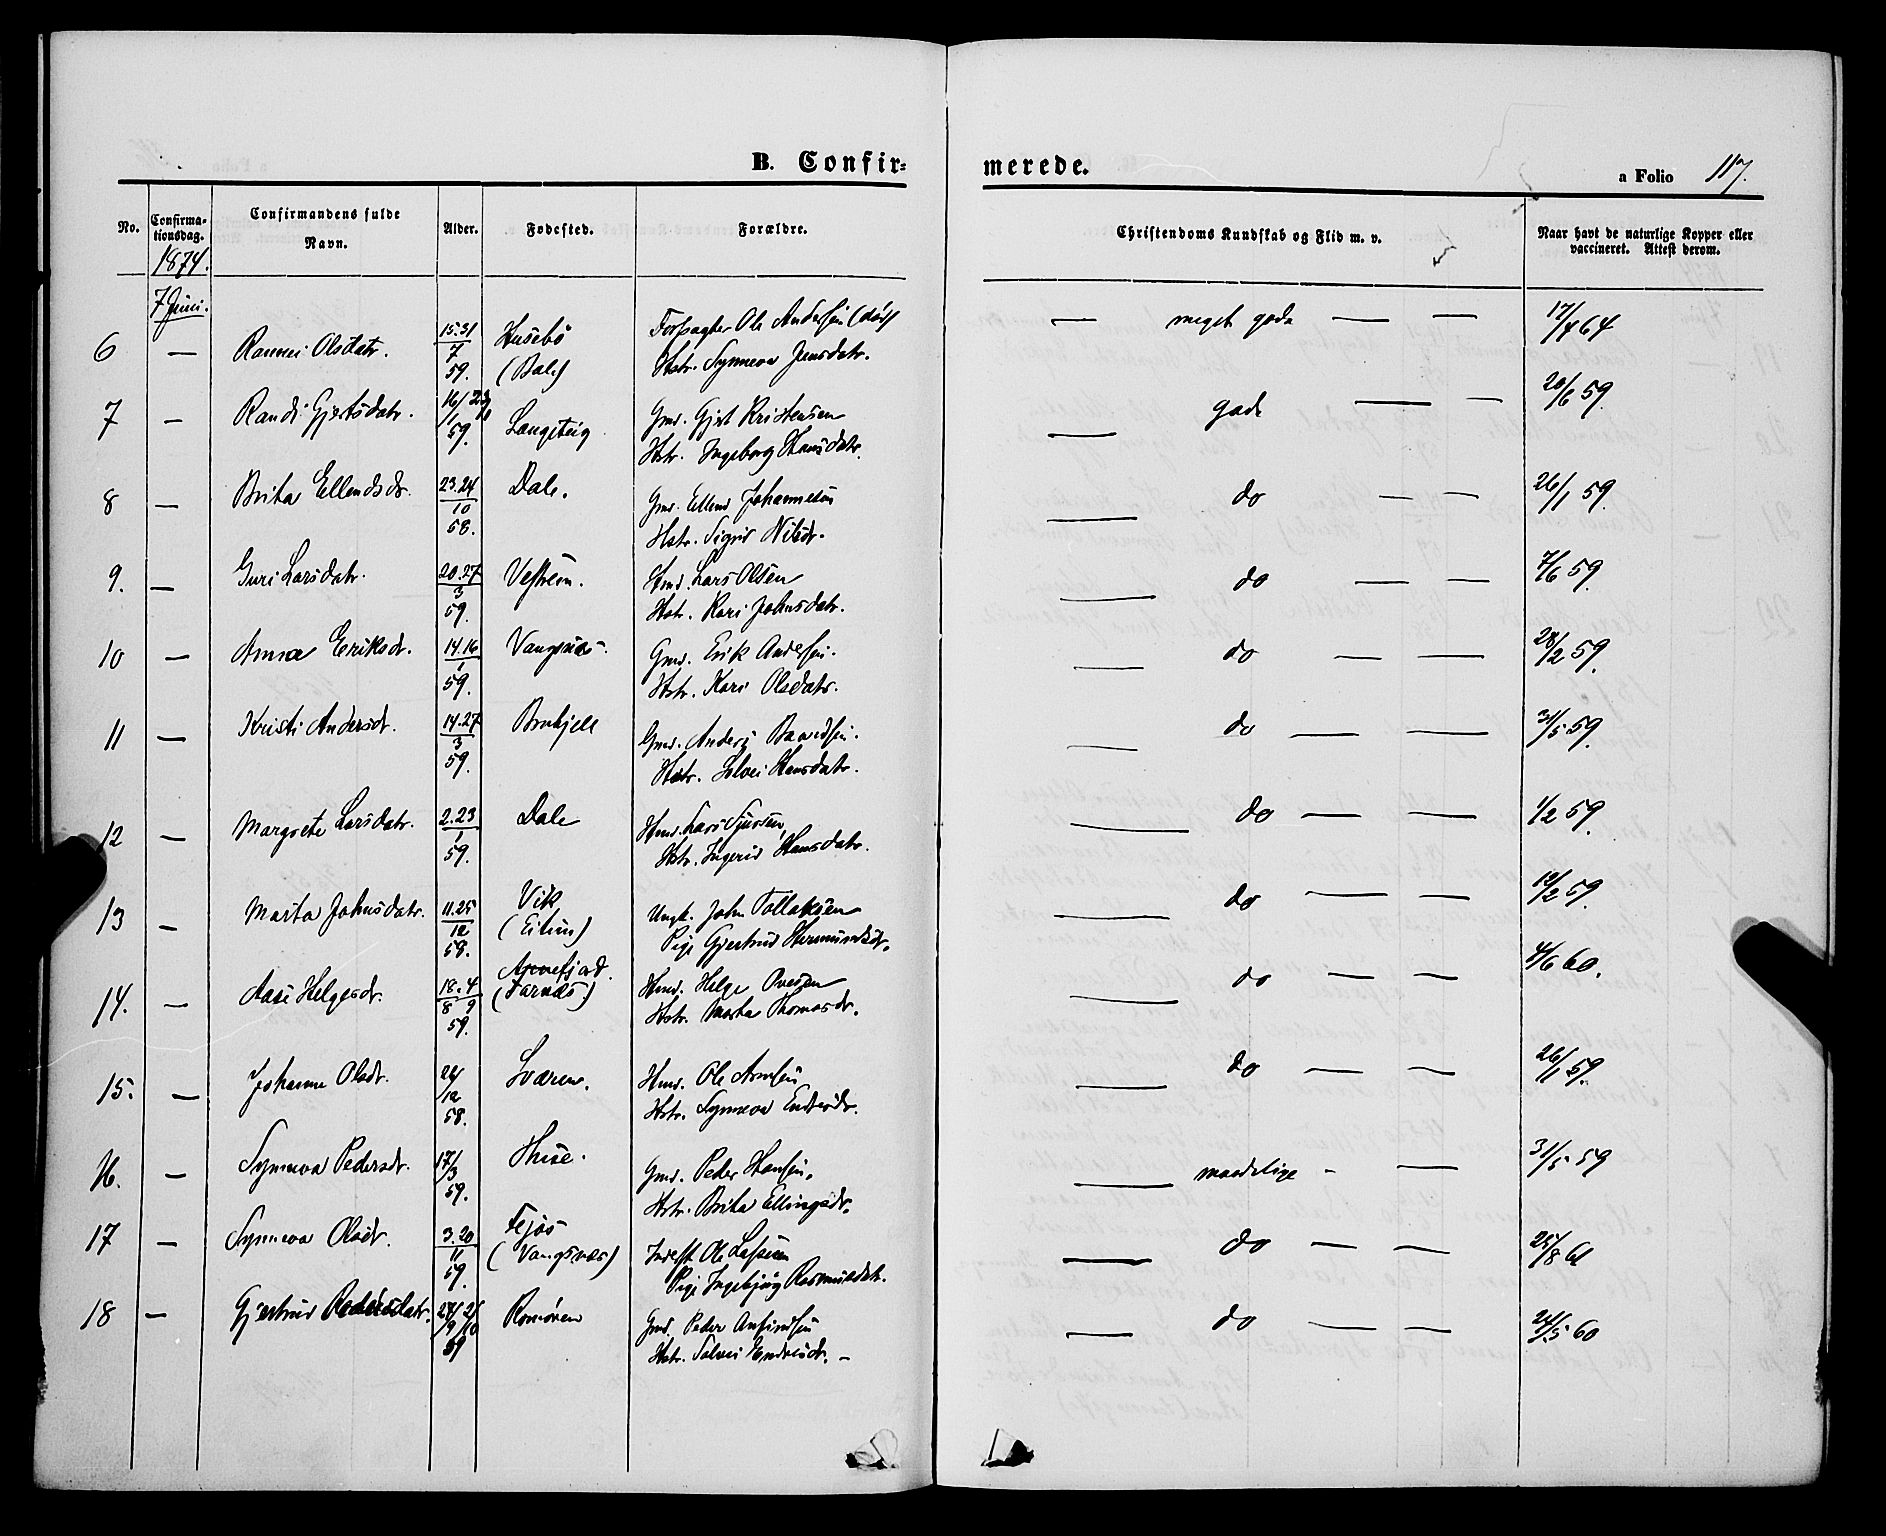 B. Confir=
merede.
a Folio 117.
No.
Confirma-
tionsdag.
Confirmandens fulde
Navn.
Alder.
Fødested.
Forældre.
Christendoms Kundskab og Flid m. v.
Naar havt de naturlige Kopper eller
vaccineret. Attest derom.
1874.
7 Juni.
6 — Rannei Olsdatr. 15.31/7 59. Husebö (Bale) Forpagter Ole Andersen (död) — meget gode — — 17/4 64
Hstr. Synneva Jensdatr.
7 — Randi Gjertsdatr. 16/1 23/1 59. Langeteig Gmd. Gjert Kristensen — gode — — 20/6 59.
Hstr. Ingeborg Hansdatr.
8 — Brita Ellendsdr. 23.24/10 58. Dale. Gmd. Ellend Johannesen — do — — 26/1 59.
Hstr. Sigrid Nilsdr.
9. — Guri Larsdatr. 20.27/3 59. Vestrem. Hmd. Lars Olsen — do — — 7/6 59.
Hstr. Kari Johnsdatr.
10 — Anna Eriksdr. 14.16/1 59. Vangsnæs. Gmd. Erik Andersen. — do — — 28/2 59.
Hstr. Kari Olsdatr.
11 — Kristi Andersdr. 14.27/3 59. Gmd. Anders — do — — 31/5 59.
Hstr. Hansdatr.
12 — Margrete Larsdatr. 2.23/1 59. Dale Hmd. Lars Sjursen, — do — — 1/2 59.
Hstr. Ingerid Hansdatr.
13 — Marta Johnsdatr. 11.25/12 58. Vik Ungk. John Tollaksen — do — — 12/2 59.
Pige Gjertrud Hermundsdr.
14. — Aase Helgesdr. 18/8 4/9 59. Arnefjord. (Tarnæs.) Hmd. Helge Ovesen — do — — 4/6 60.
Hstr. Marta Thomasdr.
15. — Johanne Olsdr. 26/12 58. Sværen. Hmd. Ole Arnesen — do — — 26/1 59.
Hstr. Synneva Endresdr.
16. — Synneva Pedersdr. 17/3 59. Huse. Gmd. Peder Hansen. — maadelige - — 31/5 59
Hstr. Brita Ellingsdr.
17 — Synneva Olsdr. 3.20/11 59. Fejos (Vangsnæs) Inderst. Ole Lassesen — do — — 25/8 61
Pige Ingebjörg Rasmusdatr.
18 — Gjertrud Pedersdatr. 27/9 2/10 59 Romören Gmd. Peder Anfindsen — do — — 24/5 60
Hstr. Solvei Endresdr. —